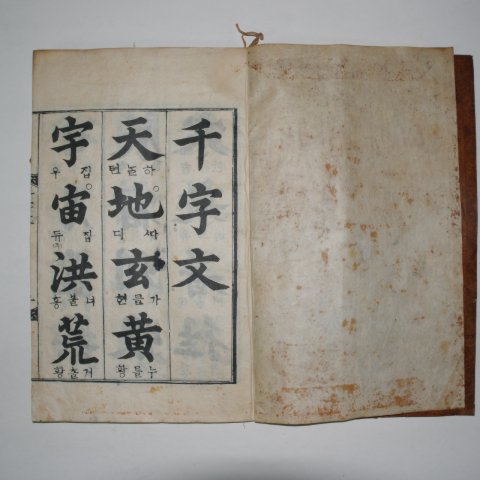 千字文
天 하ᄂᆞᆯ텬 地 ᄯᅡ디 玄 가믈현 黃 누를황
宇 집우 宙 집듀 洪 너블홍 荒 거츨황